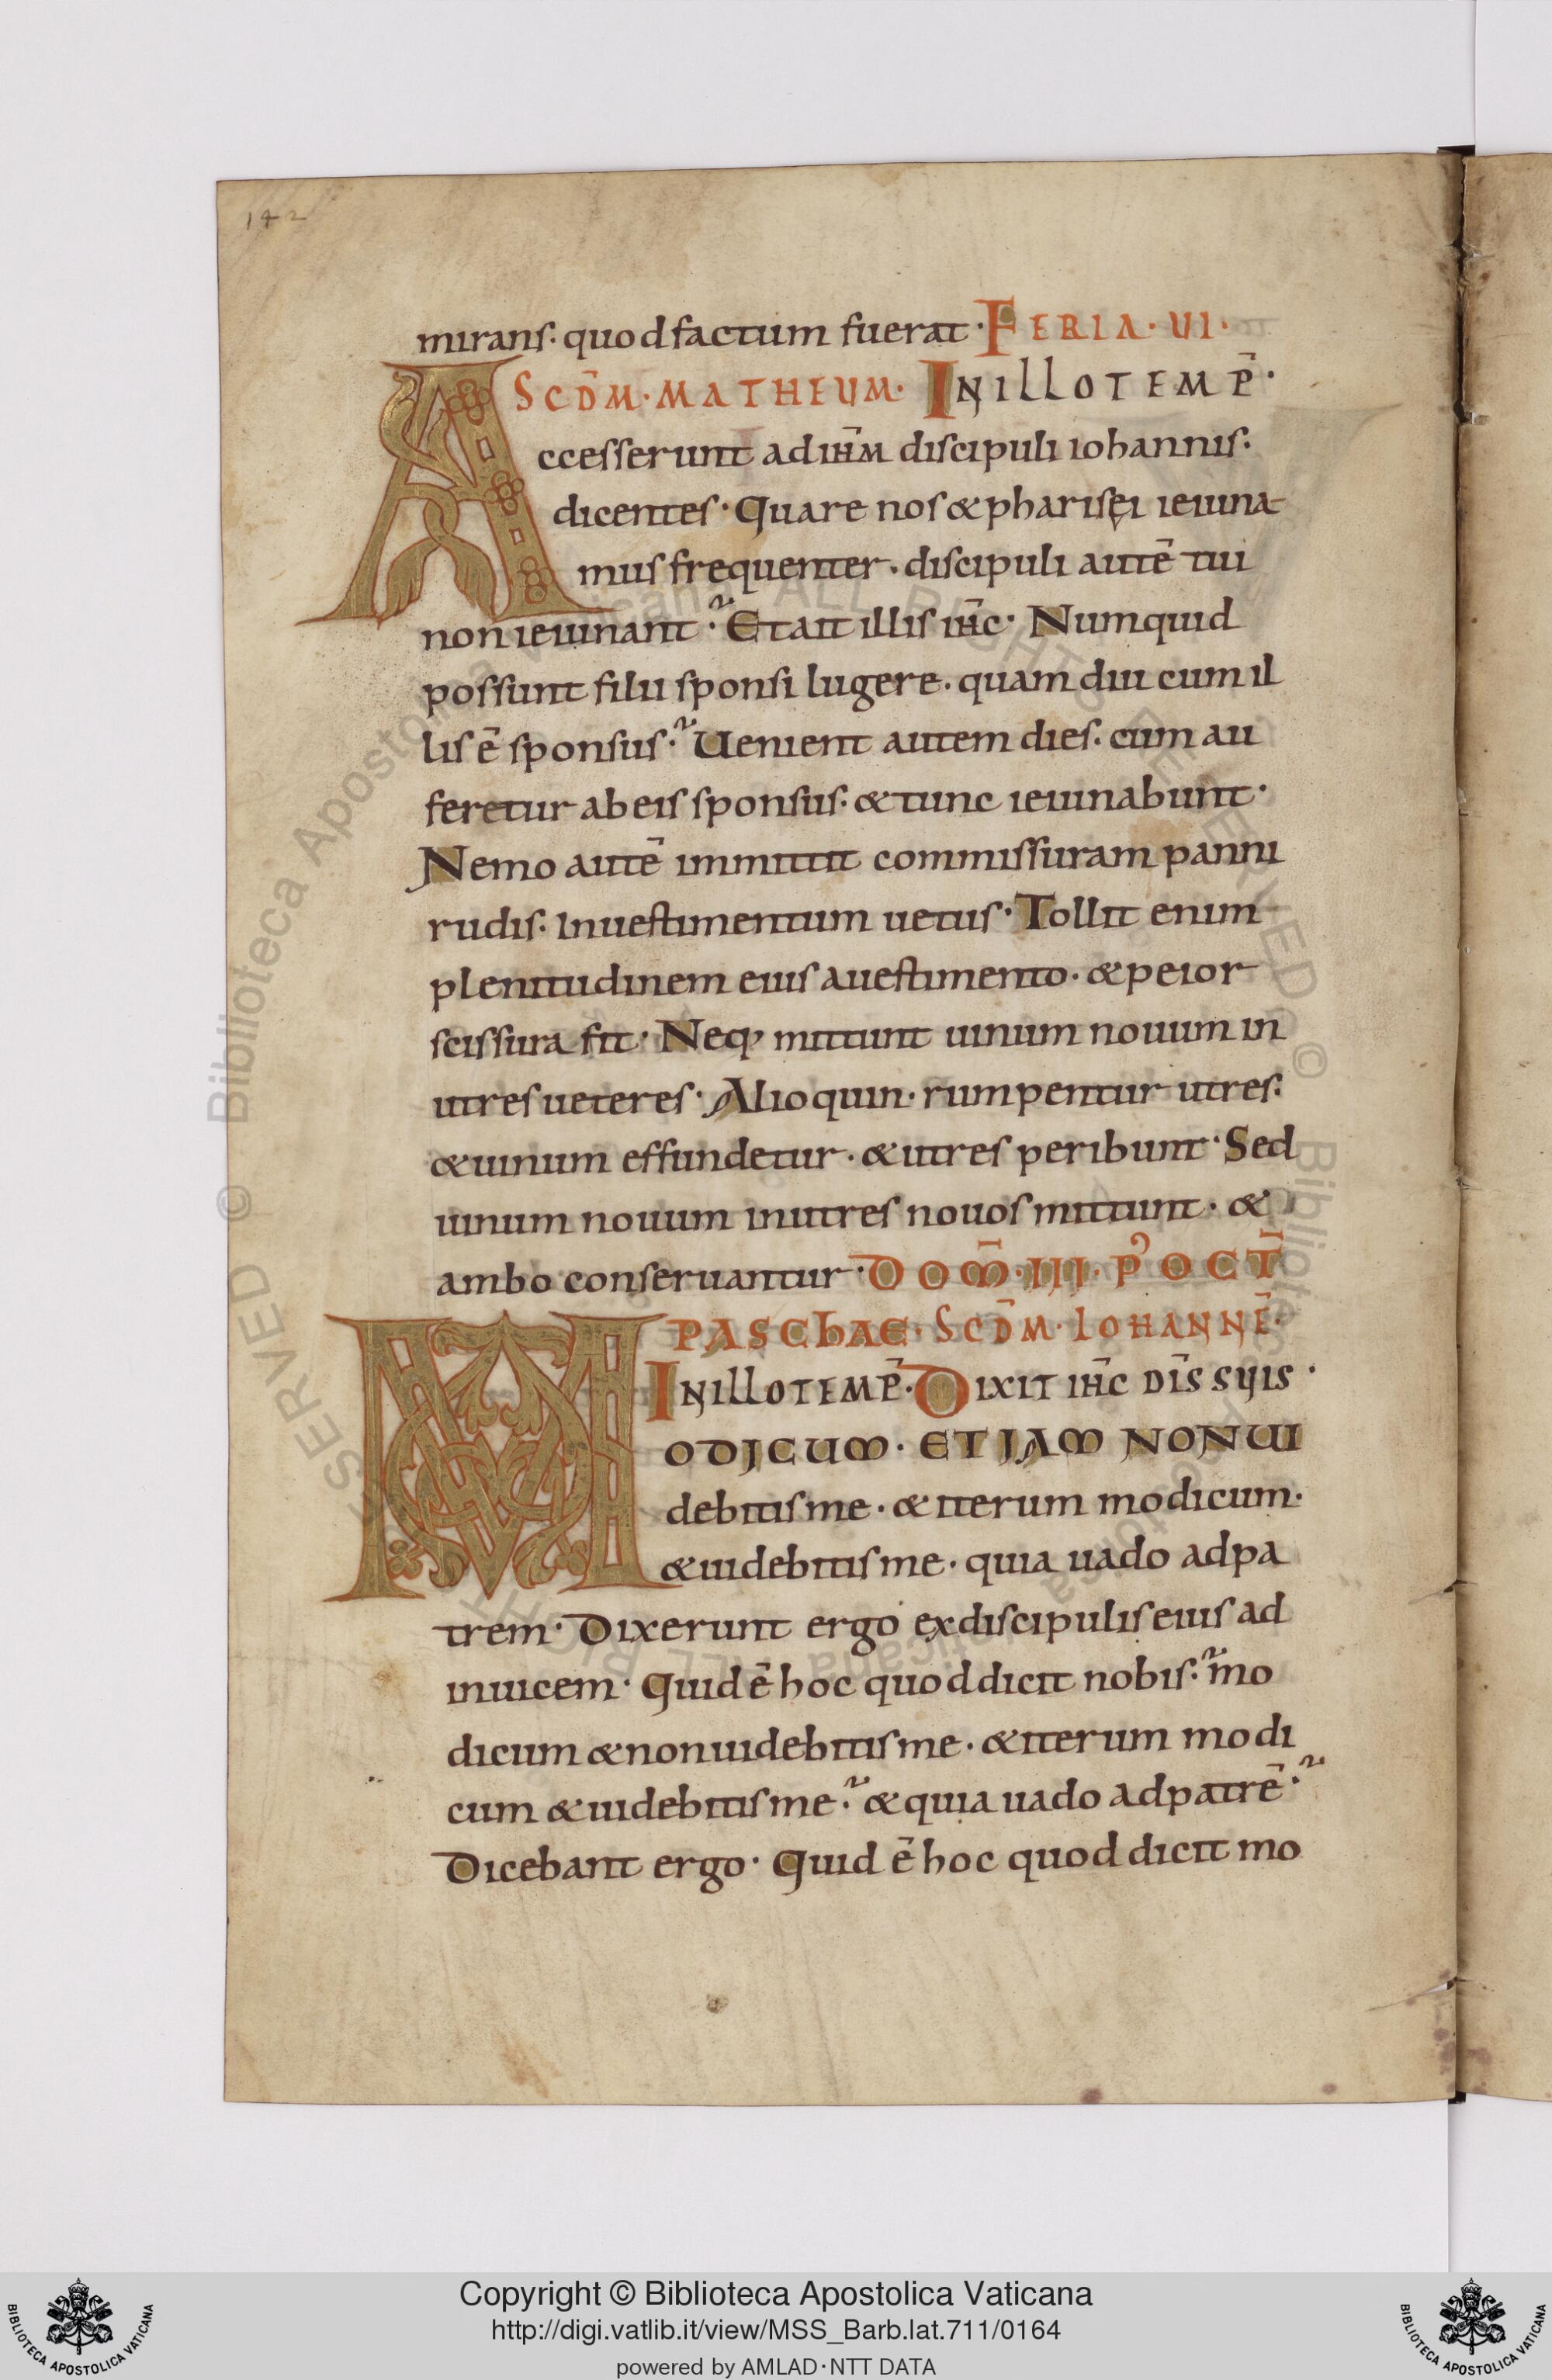 142
mirans. quod factum fuerat · FERIA · VI ·
SCDM̄ · MATHEUM · IN ILLO TEMP̄ ·
Accesserunt ad ihm̄ discipuli iohannis:
dicentes · Quare nos & pharisęi ieiuna-
mus frequenter. discipuli autē tui
non ieiunant ? Et ait illis ihc̄ · Numquid
possunt filii sponsi lugere. quam diu cum il
lis ē sponsus ? Uenient autem dies. cum au
feretur ab eis sponsus. & tunc ieiunabunt ·
Nemo autē immittit commissuram panni
rudis. In uestimentum uetus · Tollit enim
plenitudinem eius a uestimento. & peior
scissura fit · Neq; mittunt uinum nouum in
utres ueteres · Alioquin. rumpentur utres:
& uinum effundetur. & utres peribunt · Sed
uinum nouum in utres nouos mittunt. &
ambo conseruantur · DOM̄ · III · P' OCT̄
PASCHAE · SCDM̄ · IOHANNĒ ·
IN ILLO TEMP̄ · DIXIT IHC̄ DIS̄ SUIS ·
MODICUM · ET IAM NON UI
debitis me. & iterum modicum.
& uidebitis me. quia uado ad pa
trem · Dixerunt ergo ex discipulis eius ad
inuicem · Quid ē hoc quod dicit nobis ? mo
dicum & non uidebitis me. & iterum modi
cum & uidebitis me ? & quia uado ad patrē ?
Dicebant ergo · Quid ē hoc quod dicit mo
© Biblioteca Apostolica Vaticana ALL RIGHTS RESERVED ©
Copyright © Biblioteca Apostolica Vaticana
http://digi.vatlib.it/view/MSS_Barb.lat.711/0164
powered by AMLAD·NTT DATA
BIBLIOTECA APOSTOLICA VATICANA
BIBLIOTECA APOSTOLICA VATICANA